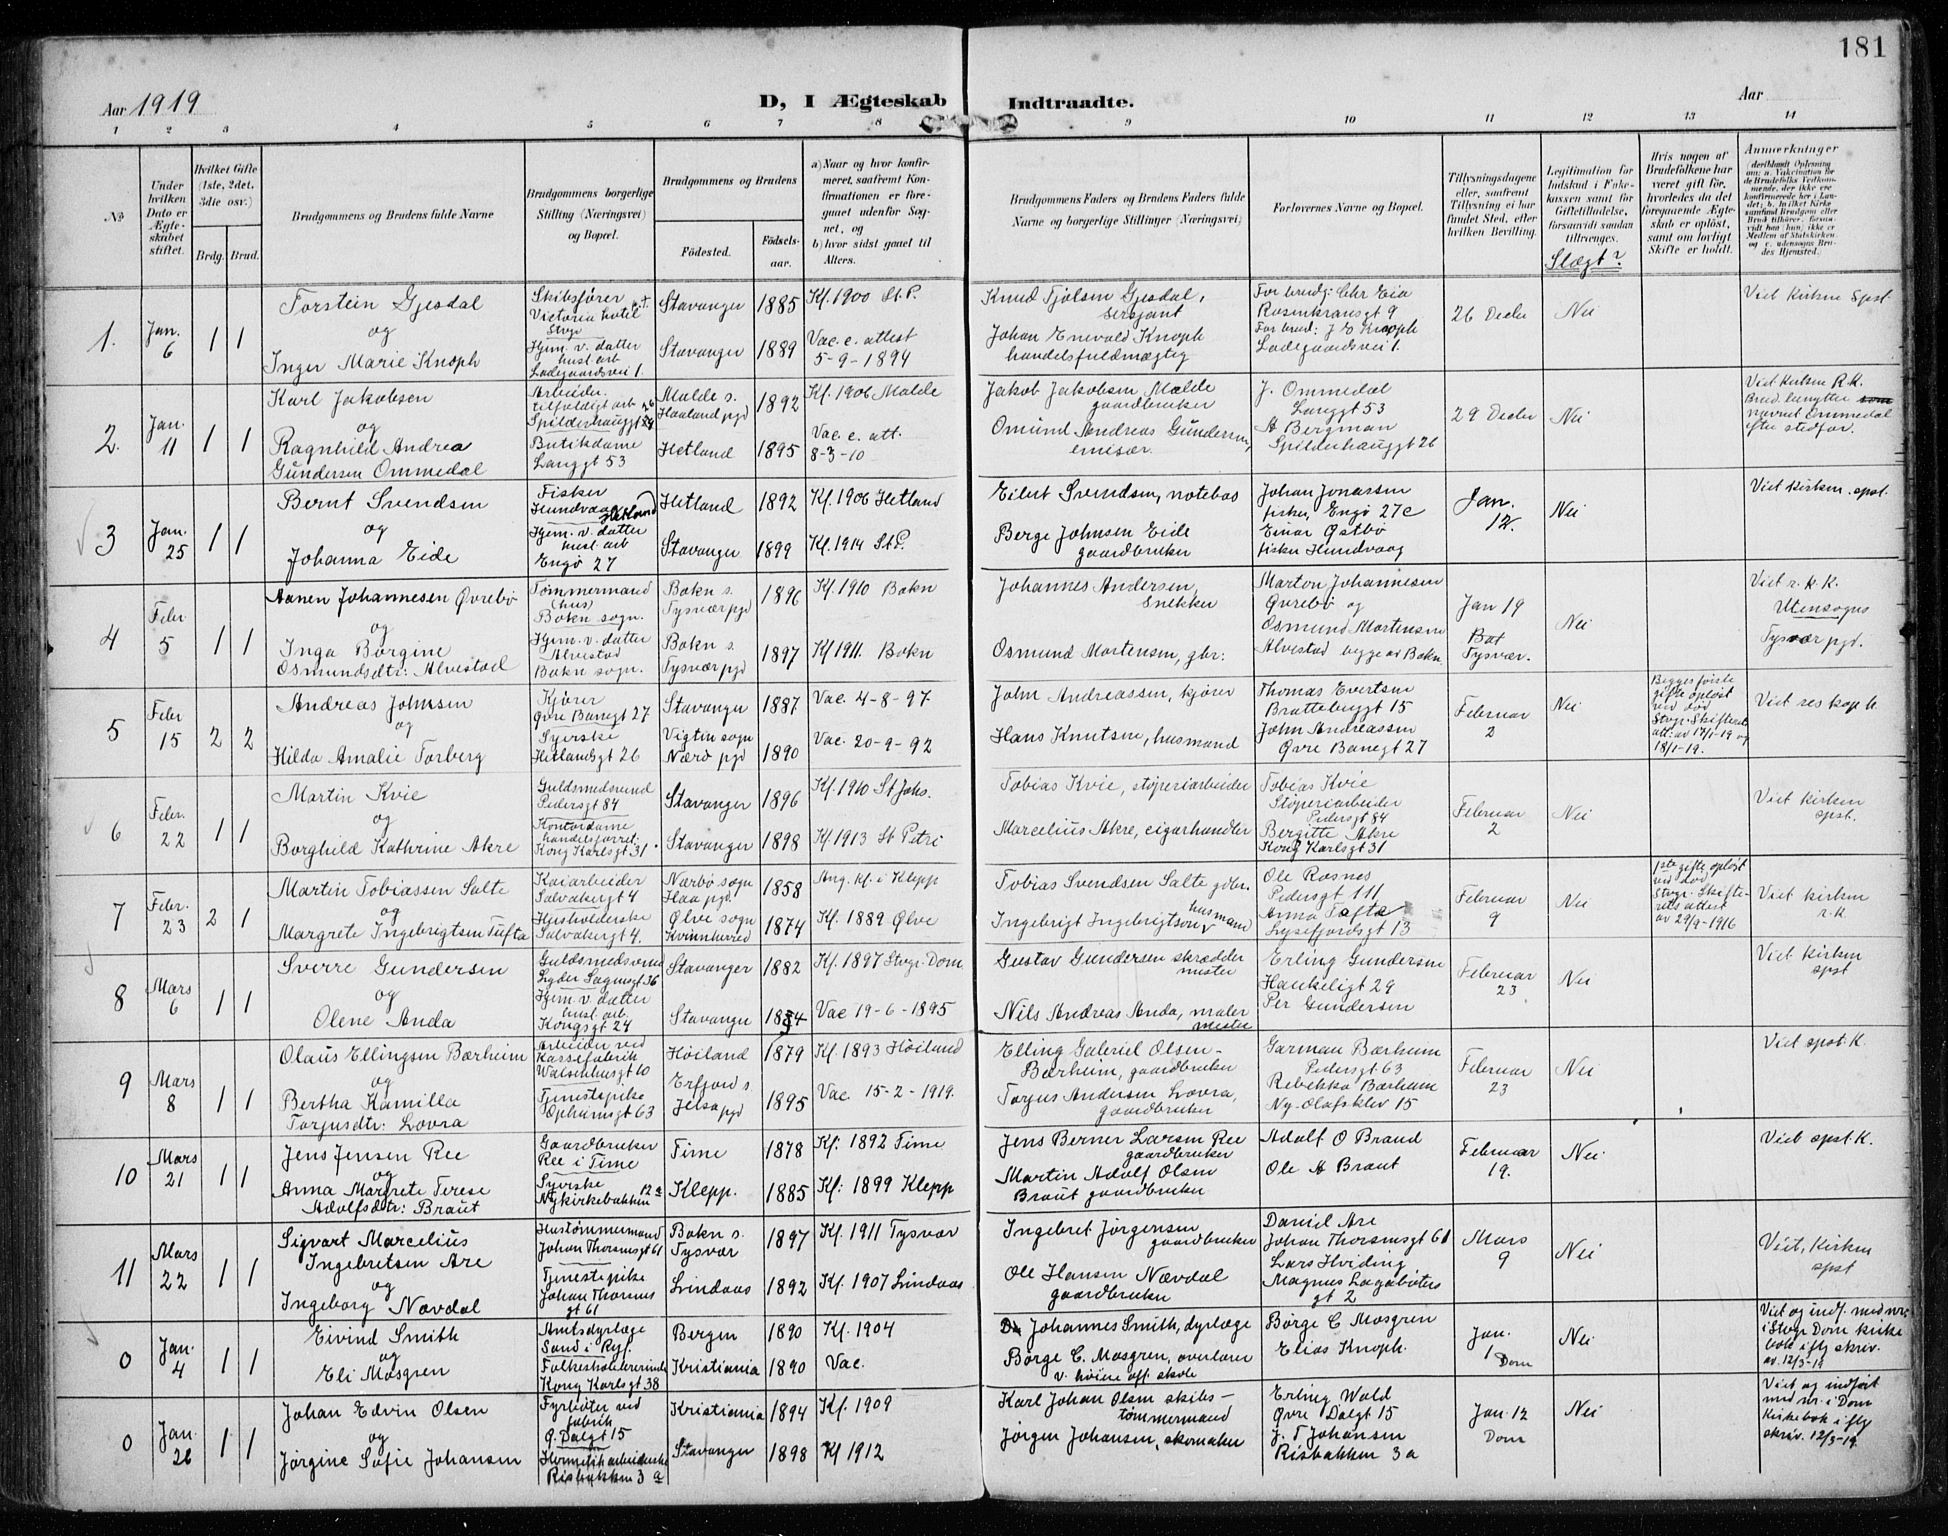 181
Aar 1919
D, I Ægteskab Indtraadte.
Aar
1 2 3 4 5 6 7 8 9 10 11 12 13 14
No
Under hvilken Dato er Ægteskabet stiftet.
Hvilket Gifte (1ste, 2det, 3die osv.)
Brdg. Brud.
Brudgommens og Brudens fulde Navne
Brudgommens borgerlige Stilling (Næringsvei) og Bopæl.
Brudgommens og Brudens
Fødested.
Fødselsaar.
a) Naar og hvor konfirmeret, saafremt Konfirmationen er foregaaet udenfor Sognet, og
b) hvor sidst gaaet til Alters.
Brudgommens Faders og Brudens Faders fulde Navne og borgerlige Stillinger (Næringsvei)
Forlovernes Navne og Bopæl.
Tillysningsdagene eller, saafremt Tillysning ei har fundet Sted, efter hvilken Bevilling.
Legitimation for Indskud i Enkekassen samt for Giftetilladelse, forsaavidt saadan tiltrænges.
Slægt?
Hvis nogen af Brudefolkene har været gift før, hvorledes da det foregaaende Ægteskab er opløst, samt om lovligt Skifte er holdt.
Anmærkninger
1. Jan. 6 1 1
Torstein Gjesdal
og
Inger Marie Knoph
Skibsfører
Victoria hotel
Stvgr
Hjem. v. datter
hust arb
Ladegaardsvei 1.
Stavanger 1885 Kf. 1900 St. P.
Stavanger 1889 Vac. e. attest
5-9-1894
Knud Tjølsen Gjesdal,
sersjant
Johan Enevald Knoph
handelsfuldmægtig
For brudg: Chr Eia
Rosenkransgt 9
For brud: J E Knoph
Ladegaardsvei 1.
26 Decbr Nei
Viet Kirken Spst
2. Jan. 11 1 1
Karl Jakobsen
og
Ragnhild Andrea
Gundersen Ommedal
Arbeider
tilfældigt arb
Spilderhauggt 26
Butikdame
Langgt 53
Malde s.
Haaland pgd 1892 Kf. 1906 Malde
Hetland 1895 Vac. e. att.
8-3-10
Jakob Jakobsen Malde
gaardbruker
Omund Andreas Gundersen,
emisær.
J. Ommedal
Langgt 53
A Bergman
Spilderhauggt 26
29 Decbr Nei
Viet Kirken R.K.
Brud benytter
navnet Ommedal
efter stedfar.
3 Jan. 25 1 1
Bernt Svendsen
og
Johanna Eide
Fisker
Hundvaag Hetland
Hjem. v. datter
hust arb
Engø 27
Hetland 1892 Kf. 1906 Hetland
Stavanger 1899 Kf. 1914 St P.
Eilert Svendsen, notebas
Berge Johnsen Eide
gaardbruker
Johan Jonassen
fisker, Engø 27 c
Einar Østbø
fisker Hundvaag
Jan. 12. Nei
Viet Kirken. spst.
4 Febr 5 1 1
Aanen Johannesen Øvrebø
og
Inga Borgine
Osmundsdtr: Alvestad
Tømmermand
(hus)
Bokn sogn.
Hjem. v. datter
Alvestad
Bokn sogn.
Bokn s.
Tysvær pgd 1896 Kf. 1910 Bokn
Bokn s.
Tysvær pgd 1897 Kf 1911. Bokn
Johannes Andersen,
snekker
Osmund Mortensen, gbr:
Marton Johannesen
Øvrebø og
Osmund Mortensen
Alvestad begge av Bokn
Jan 19
Bot
Tysvær. Nei
Viet r. k. K.
Utensogns
Tysvær pgd.
5 Febr 15 2 2
Andreas Johnsen
og
Hilda Amalie Torberg
Kjører
Øvre Banegt 27
Syerske
Hetlandsgt 26
Stavanger 1887 Vac. 4-8-97.
Vigtin sogn
Nærø pgd 1890 Vac. 20-9-92
John Andreassen, kjører
Hans Knutsen, husmand
Thomas Evertsen
Brattebøgt 15
John Andreassen
Øvre Banegt 27
Februar 2 Nei
Begges første
gifte opløst
ved død
Stvgr. Skifteret
att: av 17/1-19 og
18/1-19.
Viet res kap h.
6 Febr. 22 1 1
Martin Kvie
og
Borghild Kathrine Akre
Guldsmedsvend
Pedersgt 84
Kontordame
handelsforret.
Kong Karlsgt 31.
Stavanger 1896 Kf. 1910 St Johs.
Stavanger 1898 Kf 1913 St Petri
Tobias Kvie, støperiarbeider
Marcelius Akre, cigarhandler
Tobias Kvie
Støperiarbeider
Pedersgt 84
Bergitte Akre
Kong Karlsgt 31
Februar 2 Nei
Viet Kirken
spst.
7 Febr. 23 2 1
Martin Tobiassen Salte
og
Margrete Ingebrigtsen Tufta
Kaiarbeider
Salvabergt 4
Husholderske
Salvabergt 4.
Nærbø sogn
Haa pgd. 1858 Ang. kf. i Klepp
Ølve sogn
Kvinnherred 1874 Kf. 1889 Ølve
Tobias Svendsen Salte gdbr.
Ingebrigt Ingebrigtsen husmand
Ole Rosnes
Pedersgt 111
Anna Tafta
Lysefjordsgt 13
Februar 9 Nei
1ste gifte opløst
ved død
Stvgr. Skifterets attest
av 29/9-1916
Viet Kirken
r. K.
8 Mars 6 1 1
Sverre Gundersen
og
Olene Anda
Guldsmedsvend
Lyder Sagensgt 36
Hjem. v. datter
hust arb.
Kongsgt 24
Stavanger 1882 Kf. 1897 Stvgr. Dom
Stavanger 1884 Vac 19-6-1895
Gustav Gundersen skrædder
mester
Nils Andreas Anda, maler
mester
Erling Gundersen
Haukeligt 29
Per Gundersen
Februar 23 Nei
Viet Kirken
spst
9 Mars 8 1 1
Olaus Ellingsen Bærheim
og
Bertha Kamilla
Torjusdtr: Lovra
Arbeider ved
Kassefabrik
Waisenhusgt 10
Tjenestepike
Ophiemsgt 63
Høiland 1879 Kf. 1893 Høiland
Erfjord s.
Jelsa pgd 1895 Vac. 15-2-1919.
Elling Gabriel Olsen-
Bærheim, gaardbruker
Torjus Andersen Lovra,
gaardbruker
Garman Bærheim
Pedersgt 63
Rebekka Bærheim
Ny-Olafsklev 15
Februar 23 Nei
Viet spst. K.
10 Mars 21 1 1
Jens Jensen Ree
og
Anna Margrete Terese
Adolfsdtr: Braut
Gaardbruker
Ree i Time
Syerske
Nykirkebakken 12 a
Time 1878 Kf: 1892 Time
Klepp. 1885 Kf: 1899 Klepp
Jens Berner Larsen Ree
gaardbruker
Martin Adolf Olsen
Braut gaardbruker
Adolf O Braud
Ole A Braut
Februar 19. Nei
Viet spst. K.
11 Mars 22 1 1
Sigvart Marcelius
Ingebretsen Are
og
Ingeborg Nævdal
Hustømmermand
Johan Thorsensgt 61
Tjenestepike
Johan Thorsens
gt 61
Bokn s.
Tysvær 1897 Kf. 1911 Tysvær
Lindaas 1892 Kf. 1907 Lindaas
Ingebret Jørgensen
gaardbruker
Ole Hansen Nævdal
gaardbruker
Daniel Are
Johan Thorsensgt 61
Lars Hviding
Magnus Lagabøters
gt 2
Mars 9 Nei
Viet, Kirken
spst
0 Jan. 4 1 1
Eivind Smith
og
Eli Mosgren
Amtsdyrlæge
Sand i Ryf.
Folkeskolelærerinde
Kong Karlsgt 38
Bergen 1890 Kf. 1904
Kristiania 1890 Vac.
Johannes Smith, dyrlæge
Børge C. Mosgren, overlærer
v. høiere off. skole
Børge C Mosgren
Elias Knoph.
Jan. 1 Dom Nei
Viet og indf. med nr.
i Stvgr Dom kirke
bok i flg skriv.
av. 12/3-19
0 Jan. 26 1 1
Johan Edvin Olsen
og
Jørgine Sofie Johansen
Fyrbøter ved
fabrik
Ø. Dalgt 15
Hermetikarbeiderske
Risbakken 3 a
Kristiania 1894 Kf. 1909
Stavanger 1898 Kf 1912
Karl Johan Olsen skibs-
tømmermand
Jørgen Johansen, skomaker
Erling Wold
Øvre Dalgt 15
J. T Johansen
Risbakken 3 a
Jan. 12 Dom Nei
Viet og indført
med nr. i Dom
Kirkebok i flg
skriv. 12/3-19.